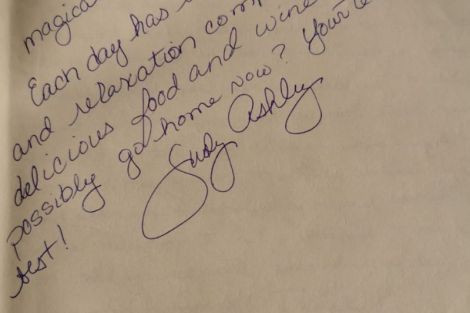 magica
Each day has
and relaxation com
delicious food and wine
possibly go home now? You're
best!
Judy Ashley